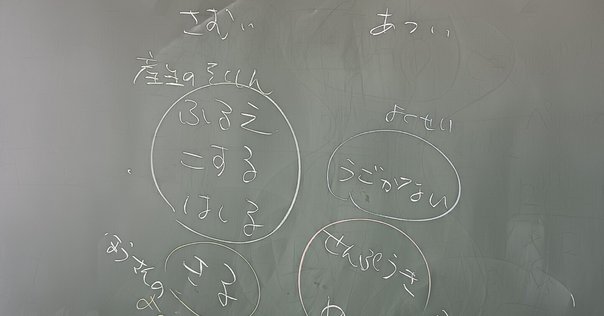 さむい
あつい
産生のそくしん
ふるえ
こする
はしる
よくせい
うごかない
ほうさんの
きる
せんぷうき